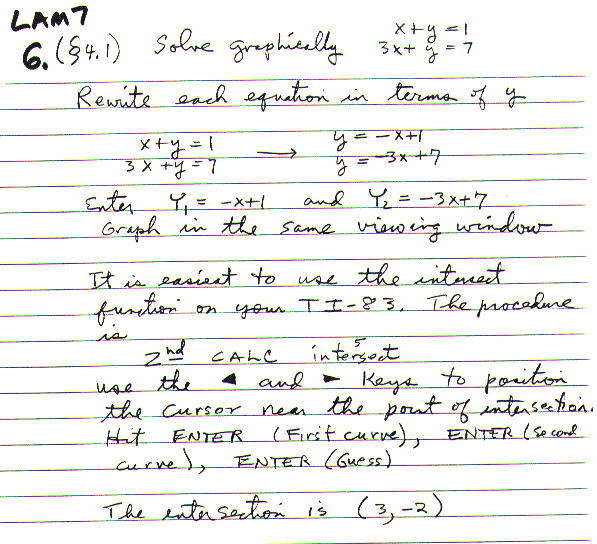 LAM7
6. (§4.1) Solve graphically x+y=1
3x+y=7
Rewrite each equation in terms of y
x+y=1 → y=-x+1
3x+y=7 y=-3x+7
Enter Y₁ = -x+1 and Y₂ = -3x+7
Graph in the same viewing window
It is easiest to use the intersect
function on your TI-83. The procedure
is
2nd CALC 5
intersect
use the ◄ and ► Keys to position
the cursor near the point of intersection.
Hit ENTER (First curve), ENTER (Second
curve), ENTER (Guess)
The intersection is (3,-2)